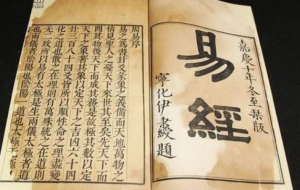 嘉慶十年冬至栞版
易經
寧化伊秉綬題
周易序
易之為書卦爻彖象之義備而天地萬物之
情見聖人之憂天下來世其至矣先天下而
開其物後天下而成其務是故極其數以定
天下之象著其象以定天下之吉凶六十四
卦三百八十四爻皆所以順性命之理盡變
化之道也散之在理則有萬殊統之在道則
无二致所以易有太極是生兩儀太極者道
也兩儀者陰陽也陰陽一道也太